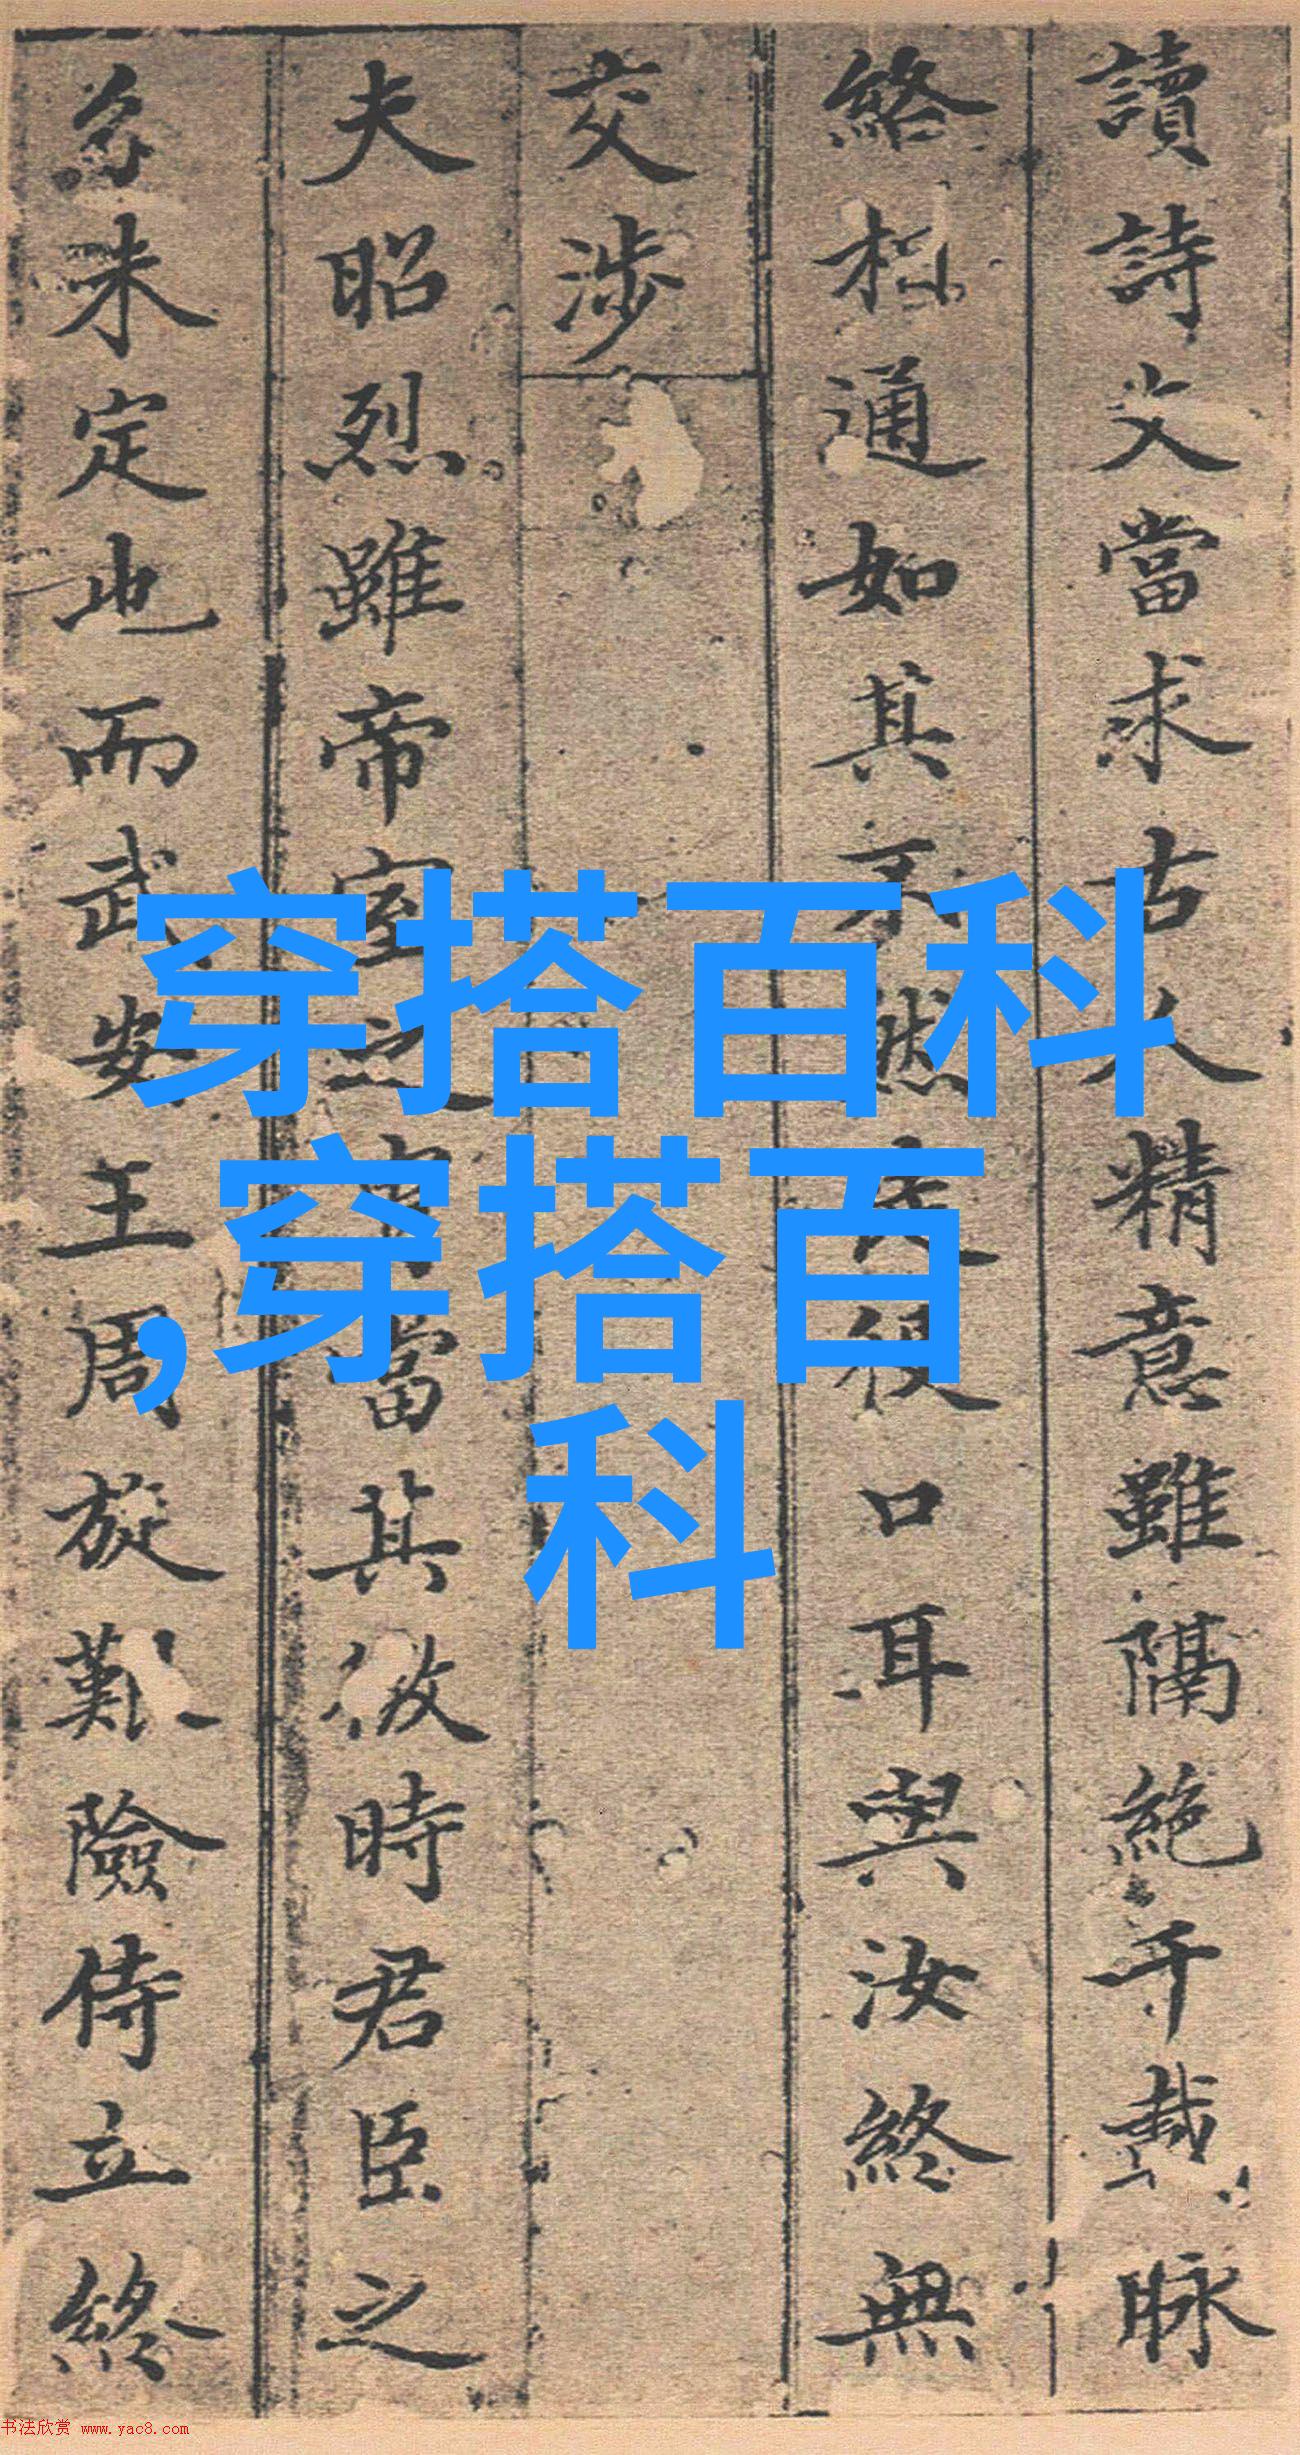 讀詩文當求古人精意雖隔絶千載脉
絡相通如其不然役口耳與汝終無
交涉
夫昭烈雖帝室之當其時君臣之
未定也而武安王周旋艱險侍立終
穿搭百科
,穿搭百
科
书法欣赏 www.yac8.com